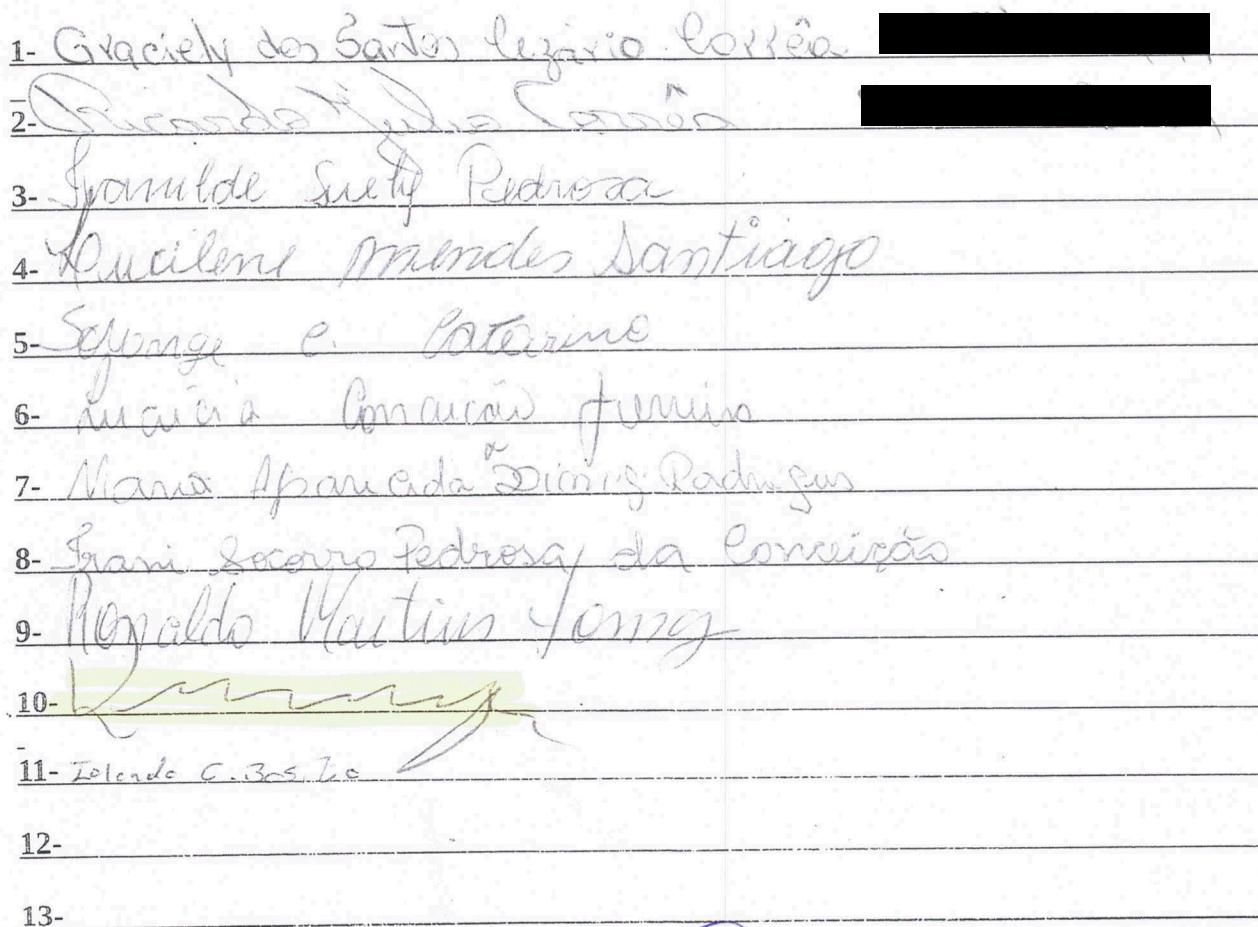 1- Graciely dos Santos Cezário Corrêa
2- Ricardo Julio Corrêa
3- Iranilde Suely Pedrosa
4- Lucilene mendes Santiago
5- Solange C. Catarino
6- Conceição
7- Maria Aparecida Diniz Rodrigues
8- Irani Socorro Pedrosa da Conceição
9- Ronaldo Martins
10-
11- Iolanda C.
12-
13-